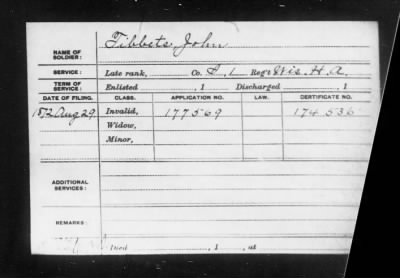 NAME OF SOLDIER: Tibbets, John
SERVICE: Late rank, Co. L, 1 Reg't Wis. H. A.
TERM OF SERVICE: Enlisted , 1 Discharged , 1
DATE OF FILING. CLASS. APPLICATION NO. LAW. CERTIFICATE NO.
1872 Aug 29 Invalid, 177569 174536
Widow,
Minor,
ADDITIONAL SERVICES:
REMARKS:
Died , 1 , at